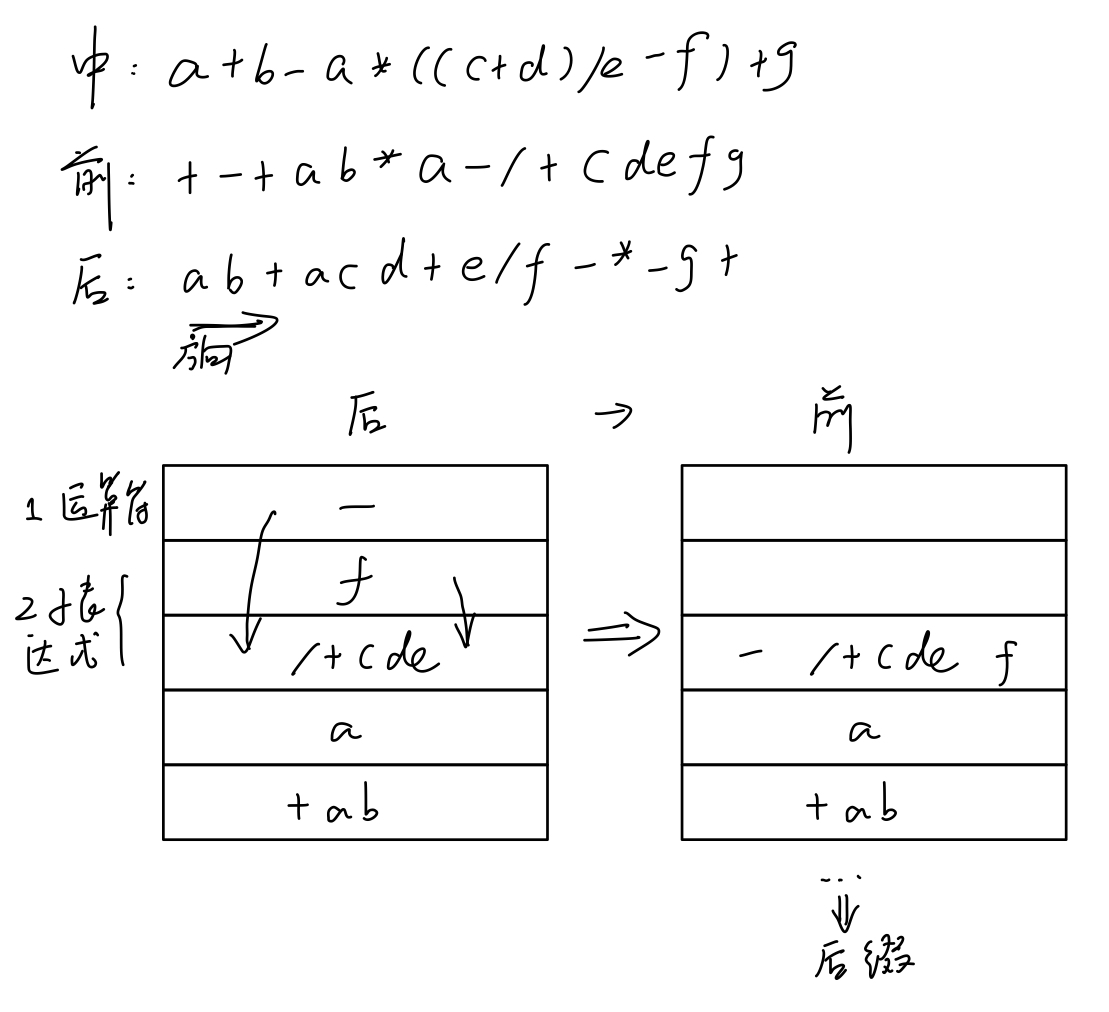 中：a+b-a*((c+d)/e-f)+g
前：+-+ab*a-/+cdefg
后：ab+acd+e/f-*-g+
方向
后 → 前
1运算符
-
2子表达式
f
/+cde ⇒ - /+cde f
a a
+ab +ab
...
⇓
后缀